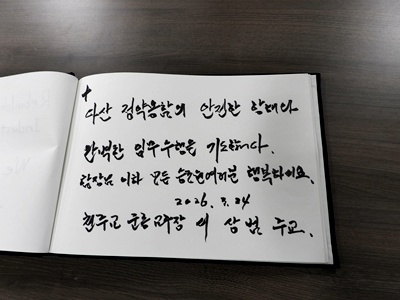 다산 정약용함의 안전한 항해와
완벽한 임무수행을 기도합니다.
함장님 이하 모든 승조원여러분 행복하세요.
2026. 3. 24
천주교 군종교구장 서 상 범 주교.